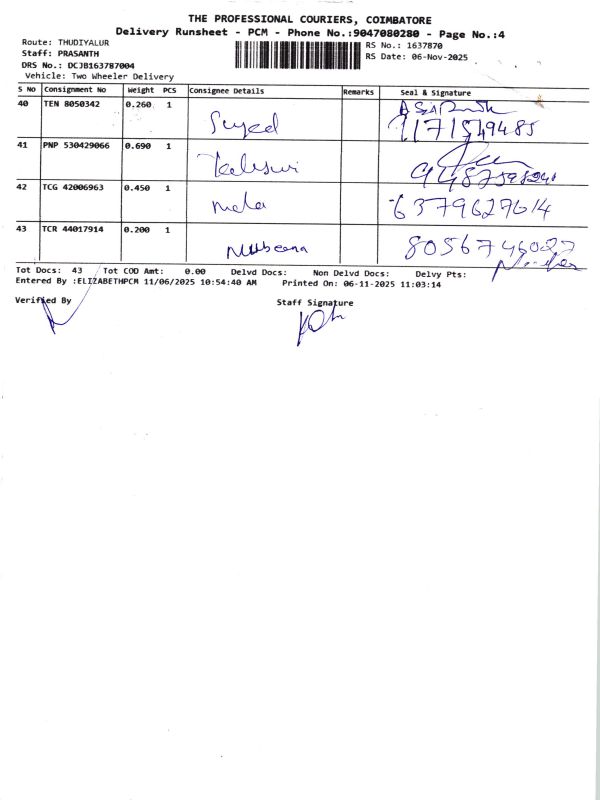 THE PROFESSIONAL COURIERS, COIMBATORE
Delivery Runsheet - PCM - Phone No.:9047080280 - Page No.:4
Route: THUDIYALUR
RS No.: 1637870
Staff: PRASANTH
RS Date: 06-Nov-2025
DRS No.: DCJB163787004
Vehicle: Two Wheeler Delivery
S No Consignment No Weight PCS Consignee Details Remarks Seal & Signature
40 TEN 8050342 0.260 1
Syed
41 PNP 530429066 0.690 1
42 TCG 42006963 0.450 1
mala 6379627614
43 TCR 44017914 0.200 1
Mubeena 8056746027
Tot Docs: 43 Tot COD Amt: 0.00 Delvd Docs: Non Delvd Docs: Delvy Pts:
Entered By :ELIZABETHPCM 11/06/2025 10:54:40 AM Printed On: 06-11-2025 11:03:14
Verified By Staff Signature